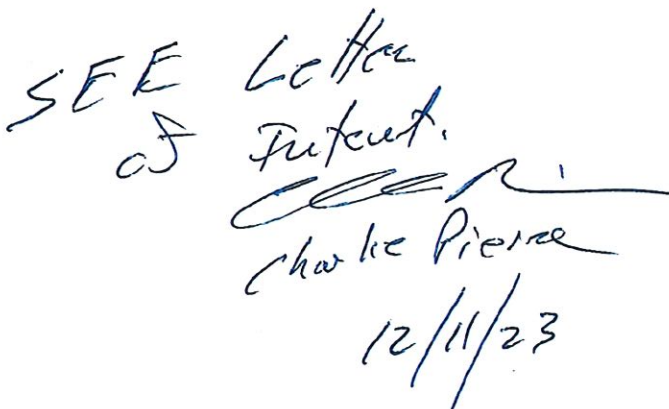 SEE Letter
of Intent.
Charlie Pierce
12/11/23